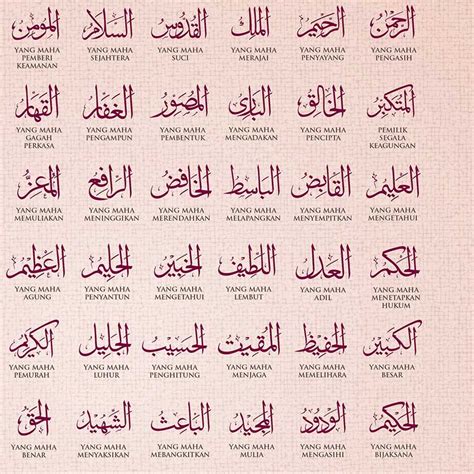 الرحمن
YANG MAHA
PENGASIH
الرحيم
YANG MAHA
PENYAYANG
الملك
YANG MAHA
MERAJAI
القدوس
YANG MAHA
SUCI
السلام
YANG MAHA
SEJAHTERA
المؤمن
YANG MAHA
PEMBERI
KEAMANAN
المتكبر
PEMILIK
SEGALA
KEAGUNGAN
الخالق
YANG MAHA
PENCIPTA
البارئ
YANG MAHA
MENGADAKAN
المصور
YANG MAHA
PEMBENTUK
الغفار
YANG MAHA
PENGAMPUN
القهار
YANG MAHA
GAGAH
PERKASA
العليم
YANG MAHA
MENGETAHUI
القابض
YANG MAHA
MENYEMPITKAN
الباسط
YANG MAHA
MELAPANGKAN
الخافض
YANG MAHA
MERENDAHKAN
الرافع
YANG MAHA
MENINGGIKAN
المعز
YANG MAHA
MEMULIAKAN
الحكم
YANG MAHA
MENETAPKAN
HUKUM
العدل
YANG MAHA
ADIL
اللطيف
YANG MAHA
LEMBUT
الخبير
YANG MAHA
MENGETAHUI
الحليم
YANG MAHA
PENYANTUN
العظيم
YANG MAHA
AGUNG
الكبير
YANG MAHA
BESAR
الحفيظ
YANG MAHA
MEMELIHARA
المقيت
YANG MAHA
MENJAGA
الحسيب
YANG MAHA
PENGHITUNG
الجليل
YANG MAHA
LUHUR
الكريم
YANG MAHA
PEMURAH
الحكيم
YANG MAHA
BIJAKSANA
الودود
YANG MAHA
MENGASIHI
المجيد
YANG MAHA
MULIA
الباعث
YANG MAHA
MEMBANGKITKAN
الشهيد
YANG MAHA
MENYAKSIKAN
الحق
YANG MAHA
BENAR